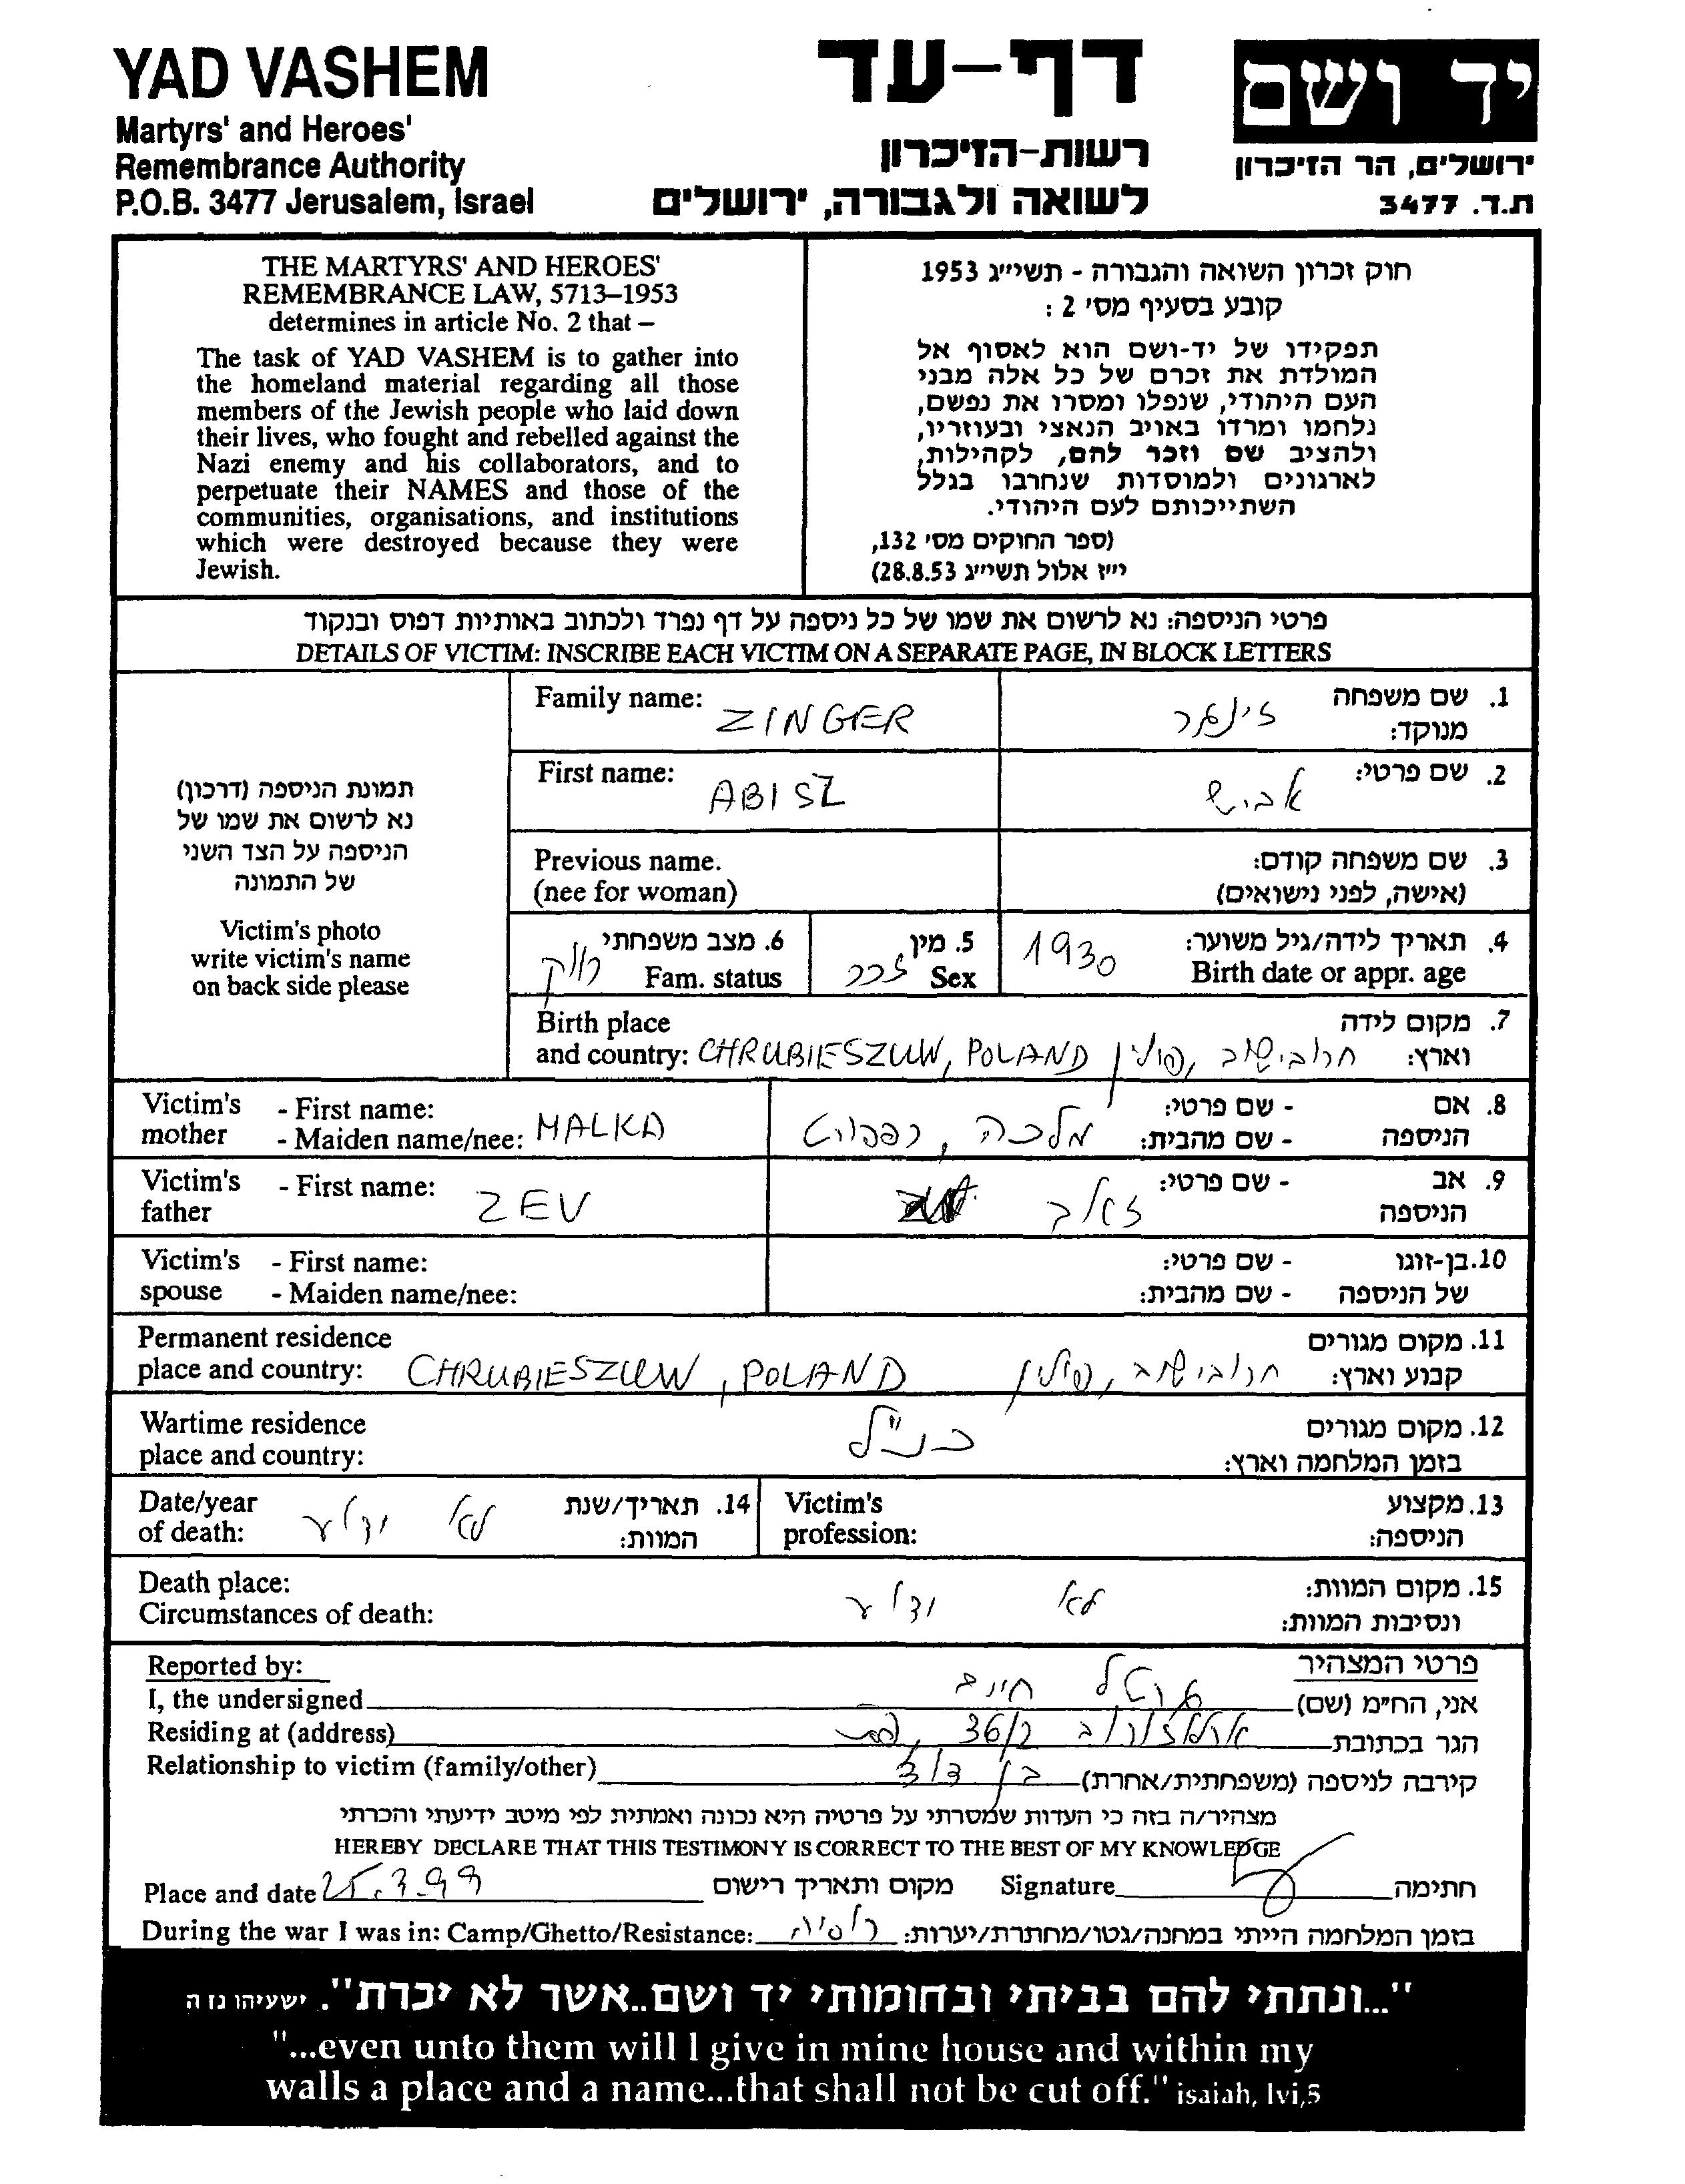 YAD VASHEM
Martyrs' and Heroes'
Remembrance Authority
P.O.B. 3477 Jerusalem, Israel
דף-עד
רשות-הזיכרון
לשואה ולגבורה, ירושלים
יד ושם
ירושלים, הר הזיכרון
ת.ד. 3477
THE MARTYRS' AND HEROES'
REMEMBRANCE LAW, 5713–1953
determines in article No. 2 that –
The task of YAD VASHEM is to gather into
the homeland material regarding all those
members of the Jewish people who laid down
their lives, who fought and rebelled against the
Nazi enemy and his collaborators, and to
perpetuate their NAMES and those of the
communities, organisations, and institutions
which were destroyed because they were
Jewish.
חוק זכרון השואה והגבורה - תשי״ג 1953
קובע בסעיף מס׳ 2 :
תפקידו של יד-ושם הוא לאסוף אל
המולדת את זכרם של כל אלה מבני
העם היהודי, שנפלו ומסרו את נפשם,
נלחמו ומרדו באויב הנאצי ובעוזריו,
ולהציב שם וזכר להם, לקהילות,
לארגונים ולמוסדות שנחרבו בגלל
השתייכותם לעם היהודי.
(ספר החוקים מס׳ 132,
י״ז אלול תשי״ג 28.8.53)
פרטי הניספה: נא לרשום את שמו של כל ניספה על דף נפרד ולכתוב באותיות דפוס ובנקוד
DETAILS OF VICTIM: INSCRIBE EACH VICTIM ON A SEPARATE PAGE, IN BLOCK LETTERS
תמונת הניספה (דרכון)
נא לרשום את שמו של
הניספה על הצד השני
של התמונה
Victim's photo
write victim's name
on back side please
Family name: ZINGER
1. שם משפחה מנוקד: זינגר
First name: ABISZ
2. שם פרטי: אביש
Previous name.
(nee for woman)
3. שם משפחה קודם:
(אישה, לפני נישואים)
4. תאריך לידה/גיל משוער: 1930
Birth date or appr. age
5. מין זכר
Sex
6. מצב משפחתי רווק
Fam. status
Birth place
and country: CHRUBIESZUW, POLAND
7. מקום לידה
וארץ: חרובישוב, פולין
Victim's mother - First name:
- Maiden name/nee: MALKA
8. אם הניספה - שם פרטי:
- שם מהבית: מלכה,
Victim's father - First name: ZEV
9. אב הניספה - שם פרטי: זאב
Victim's spouse - First name:
- Maiden name/nee:
10. בן-זוגו של הניספה - שם פרטי:
- שם מהבית:
Permanent residence
place and country: CHRUBIESZUW, POLAND
11. מקום מגורים
קבוע וארץ: חרובישוב, פולין
Wartime residence
place and country:
12. מקום מגורים
בזמן המלחמה וארץ: כנ"ל
Date/year
of death:
14. תאריך/שנת
המוות: לא ידוע
Victim's
profession:
13. מקצוע
הניספה:
Death place:
Circumstances of death:
15. מקום המוות:
ונסיבות המוות: לא ידוע
Reported by:
פרטי המצהיר
I, the undersigned
אני, הח״מ (שם) חיים
Residing at (address)
הגר בכתובת ארלוזורוב 36/2
Relationship to victim (family/other)
קירבה לניספה (משפחתית/אחרת) בן דוד
מצהיר/ה בזה כי העדות שמסרתי על פרטיה היא נכונה ואמתית לפי מיטב ידיעתי והכרתי
HEREBY DECLARE THAT THIS TESTIMONY IS CORRECT TO THE BEST OF MY KNOWLEDGE
Place and date 25.3.99 מקום ותאריך רישום
Signature חתימה
During the war I was in: Camp/Ghetto/Resistance:
בזמן המלחמה הייתי במחנה/גטו/מחתרת/יערות: רוסיה
"...ונתתי להם בביתי ובחומותי יד ושם..אשר לא יכרת". ישעיהו נו ה
"...even unto them will I give in mine house and within my
walls a place and a name...that shall not be cut off." isaiah, lvi,5